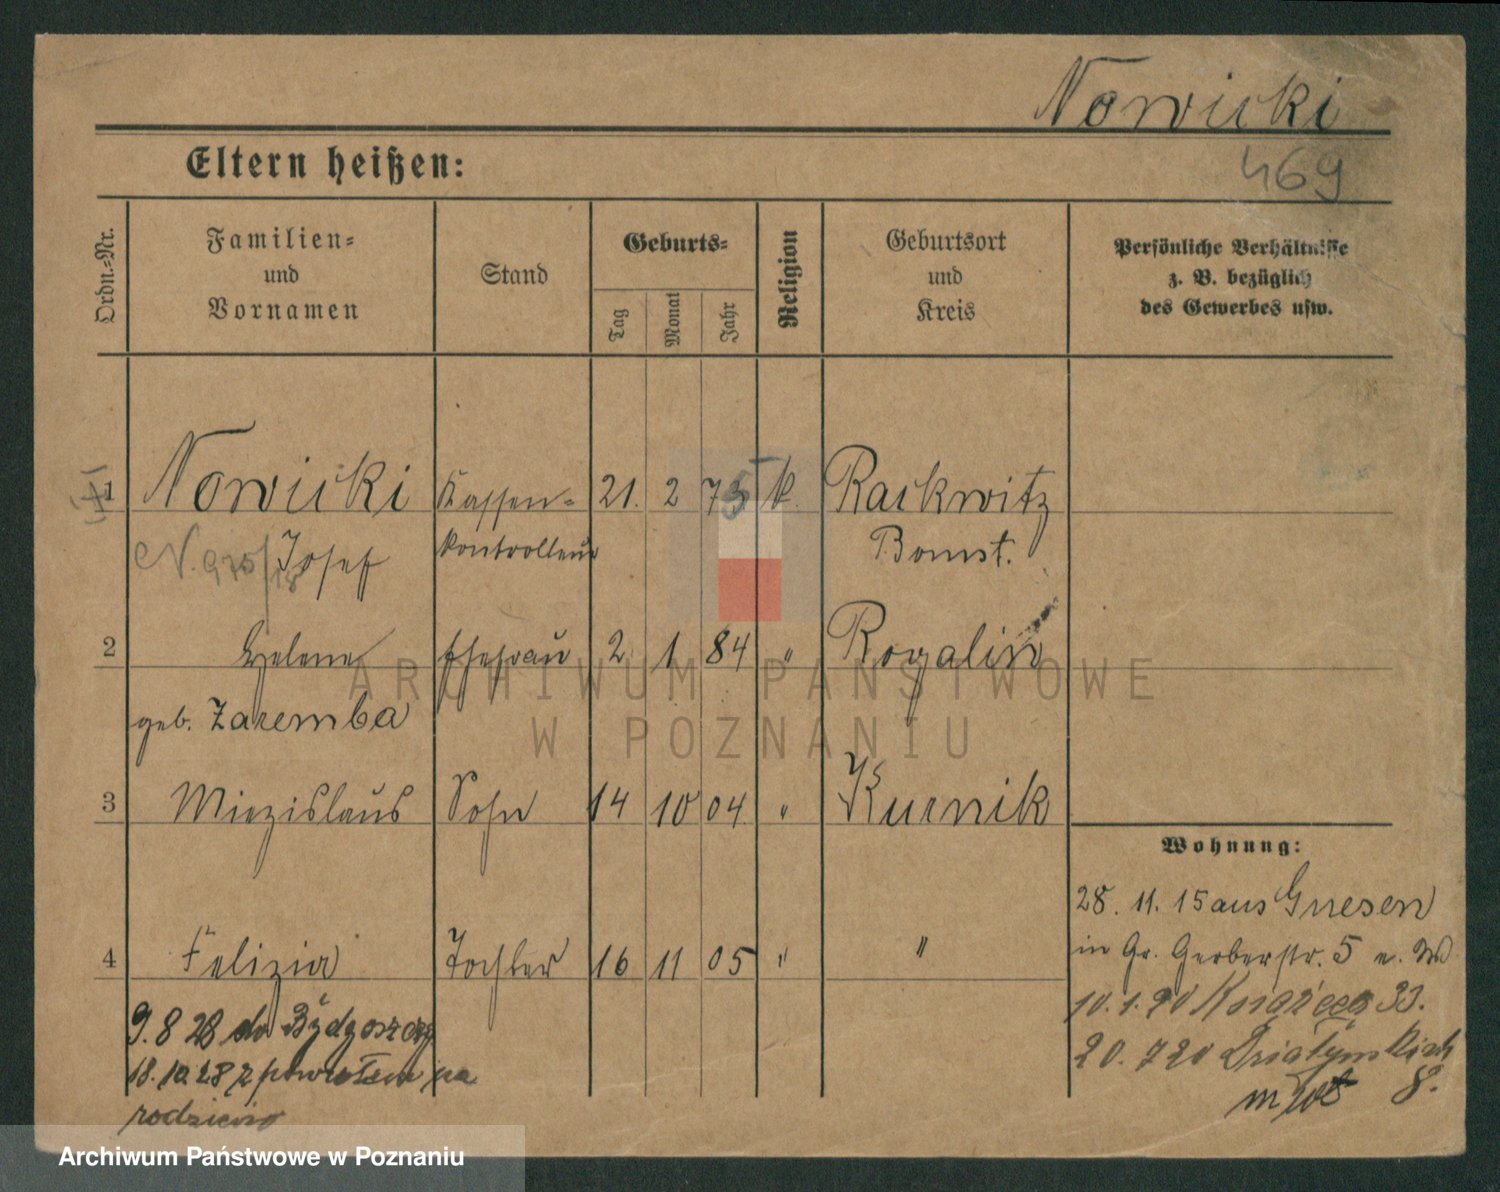 Nowicki
469
Eltern heißen:
Ordn.-Nr.
Familien-
und
Vornamen
Stand
Geburts-
Tag
Monat
Jahr
Religion
Geburtsort
und
Kreis
Persönliche Verhältnisse
z. B. bezüglich
des Gewerbes usw.
1 Nowicki Kassen- 21. 2 75 k. Rackwitz
Josef kontrolleur Bomst.
2 Helene Ehefrau 2. 1 84 " Rogalin
geb. Zaremba
3 Miezislaus Sohn 14 10 04 " Kurnik
Wohnung:
28. 11. 15 aus Gnesen
4 Felizia Tochter 16 11 05 " "
in Gr. Gerberstr. 5
10. 1. 20 33.
20. 7 20 Działyńskich
8.
9. 8 28 do Bydgoszczy
18. 10 28 z powrotem
ARCHIWUM PAŃSTWOWE
W POZNANIU
Archiwum Państwowe w Poznaniu